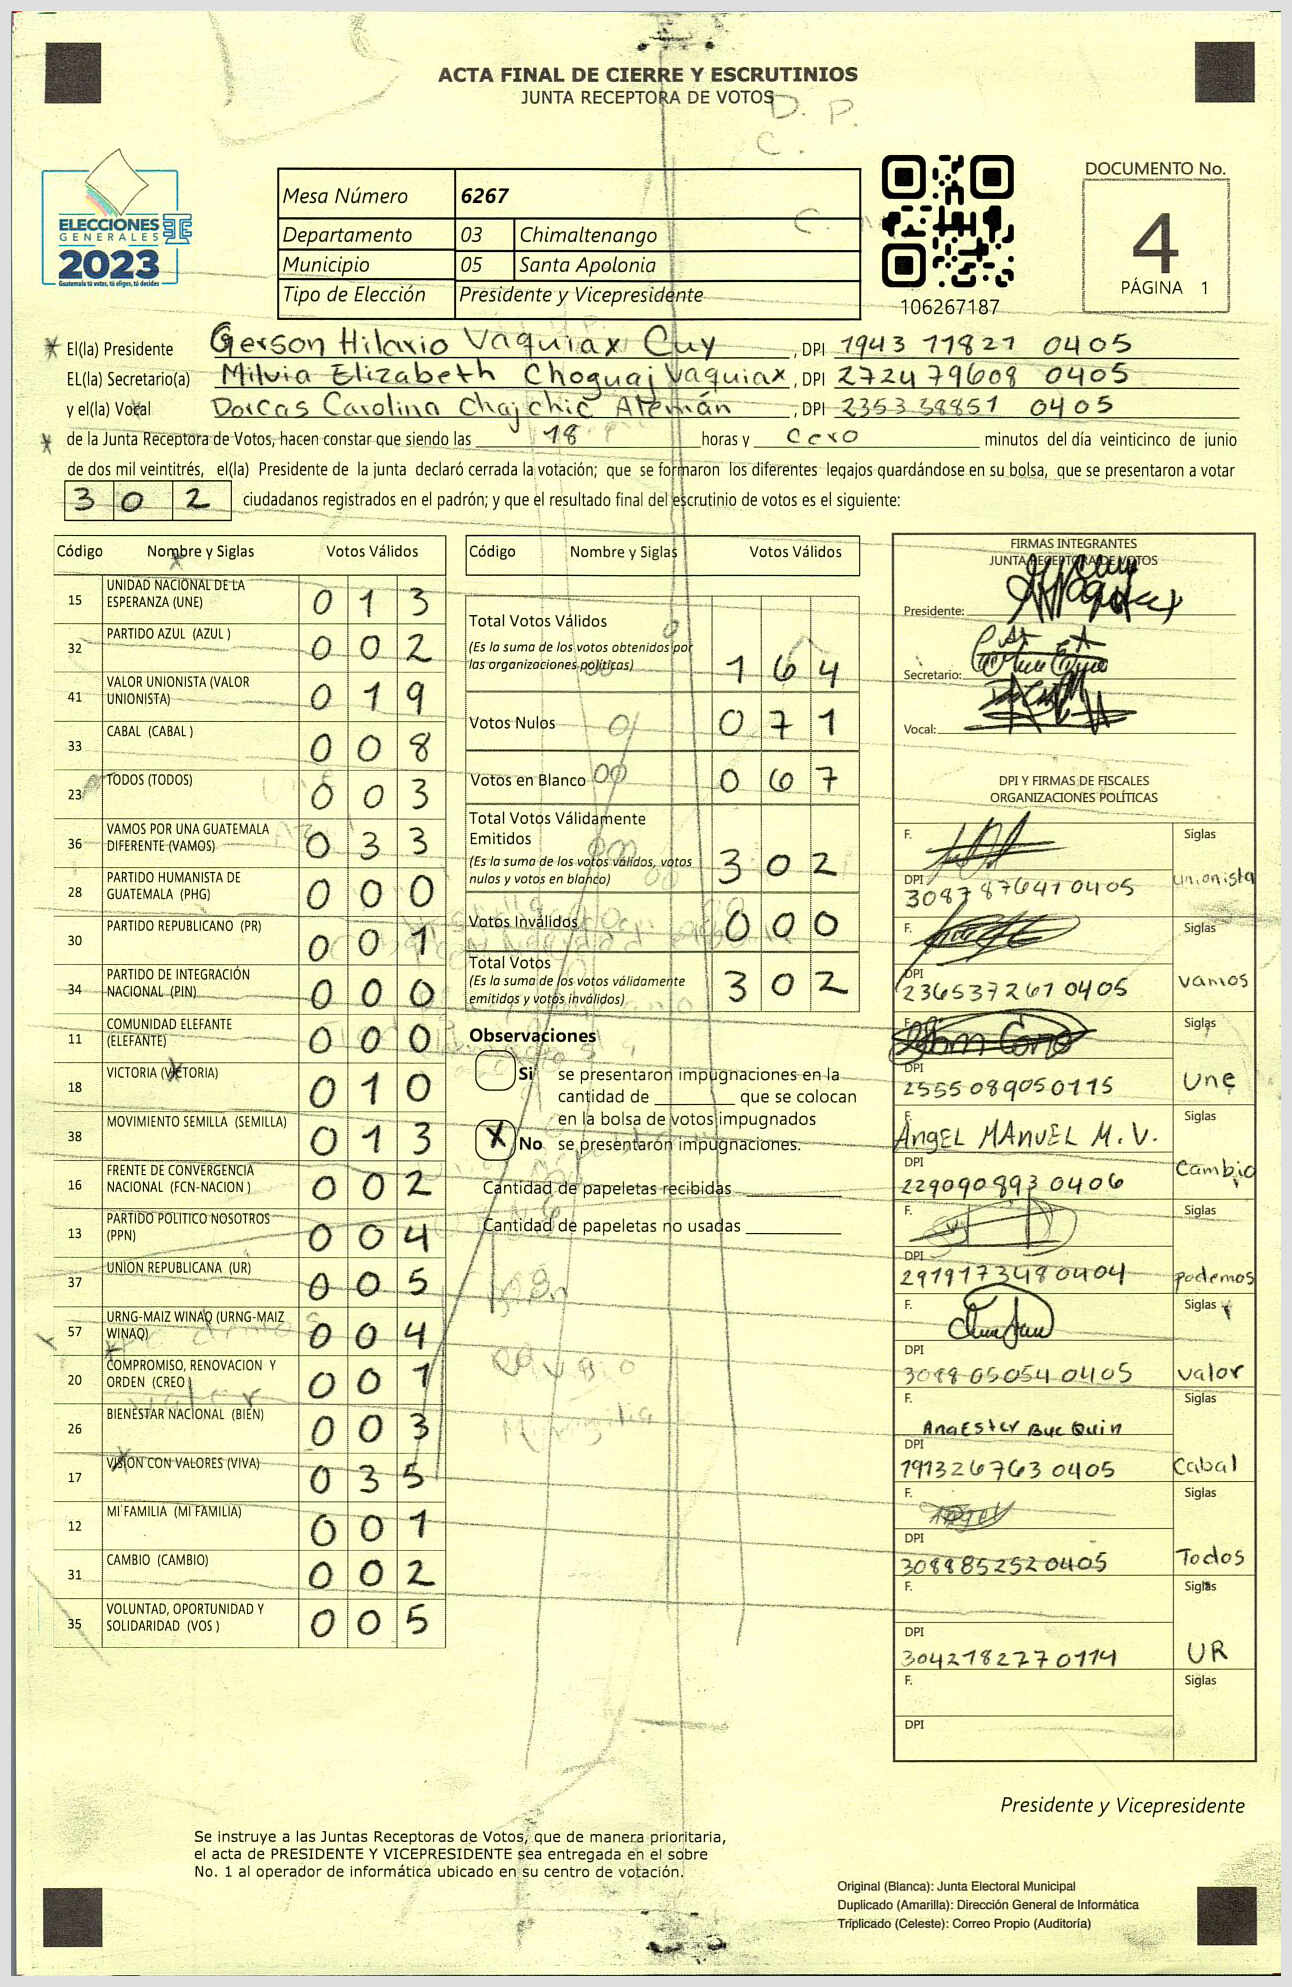 ACTA FINAL DE CIERRE Y ESCRUTINIOS
JUNTA RECEPTORA DE VOTOS
D. P.
C.
ELECCIONES
GENERALES
2023
Guatemala tú votas, tú eliges, tú decides
Mesa Número 6267
Departamento 03 Chimaltenango
Municipio 05 Santa Apolonia
Tipo de Elección Presidente y Vicepresidente
106267187
DOCUMENTO No.
4
PÁGINA 1
El(la) Presidente Gerson Hilario Vaquiax Cuy, DPI 1943 11821 0405
EL(la) Secretario(a) Milvia Elizabeth Choguaj Vaquiax, DPI 272479608 0405
y el(la) Vocal Dorcas Carolina Chajchic Atemán, DPI 2353 38851 0405
de la Junta Receptora de Votos, hacen constar que siendo las 18 horas y cero minutos del día veinticinco de junio
de dos mil veintitrés, el(la) Presidente de la junta declaró cerrada la votación; que se formaron los diferentes legajos quardándose en su bolsa, que se presentaron a votar
302 ciudadanos registrados en el padrón; y que el resultado final del escrutinio de votos es el siguiente:
Código Nombre y Siglas Votos Válidos
15 UNIDAD NACIONAL DE LA ESPERANZA (UNE) 013
32 PARTIDO AZUL (AZUL ) 002
41 VALOR UNIONISTA (VALOR UNIONISTA) 019
33 CABAL (CABAL ) 008
23 TODOS (TODOS) 003
36 VAMOS POR UNA GUATEMALA DIFERENTE (VAMOS) 033
28 PARTIDO HUMANISTA DE GUATEMALA (PHG) 000
30 PARTIDO REPUBLICANO (PR) 001
34 PARTIDO DE INTEGRACIÓN NACIONAL (PIN) 000
11 COMUNIDAD ELEFANTE (ELEFANTE) 000
18 VICTORIA (VICTORIA) 010
38 MOVIMIENTO SEMILLA (SEMILLA) 013
16 FRENTE DE CONVERGENCIA NACIONAL (FCN-NACION ) 002
13 PARTIDO POLITICO NOSOTROS (PPN) 004
37 UNION REPUBLICANA (UR) 005
57 URNG-MAIZ WINAQ (URNG-MAIZ WINAQ) 004
20 COMPROMISO, RENOVACION Y ORDEN (CREO ) 001
26 BIENESTAR NACIONAL (BIEN) 003
17 VISION CON VALORES (VIVA) 035
12 MI FAMILIA (MI FAMILIA) 001
31 CAMBIO (CAMBIO) 002
35 VOLUNTAD, OPORTUNIDAD Y SOLIDARIDAD (VOS ) 005
Código Nombre y Siglas Votos Válidos
Total Votos Válidos
(Es la suma de los votos obtenidos por
las organizaciones políticas) 164
Votos Nulos 071
Votos en Blanco 067
Total Votos Válidamente
Emitidos
(Es la suma de los votos válidos, votos
nulos y votos en blanco) 302
Votos Inválidos 000
Total Votos
(Es la suma de los votos válidamente
emitidos y votos inválidos) 302
Observaciones
Si se presentaron impugnaciones en la
cantidad de que se colocan
en la bolsa de votos impugnados
X No se presentarón impugnaciones.
Cantidad de papeletas recibidas
Cantidad de papeletas no usadas
FIRMAS INTEGRANTES
JUNTA RECEPTORA DE VOTOS
Presidente:
Secretario:
Vocal:
DPI Y FIRMAS DE FISCALES
ORGANIZACIONES POLÍTICAS
F. Siglas
DPI 3087 87641 0405 unionista
F. Siglas
DPI 236537261 0405 vamos
F. Siglas
DPI 2555 08905 0115 Une
F. Angel MANUEL M. V. Siglas
DPI 229090893 0406 Cambio
F. Siglas
DPI 291917348 0404 podemos
F. Siglas
DPI 3088 05054 0405 valor
F. AnaEster Buc Quin Siglas
DPI 191326763 0405 Cabal
F. Siglas
DPI 308885252 0405 Todos
F. Siglas
DPI 304218277 0114 UR
F. Siglas
DPI
Presidente y Vicepresidente
Se instruye a las Juntas Receptoras de Votos, que de manera prioritaria,
el acta de PRESIDENTE Y VICEPRESIDENTE sea entregada en el sobre
No. 1 al operador de informática ubicado en su centro de votación.
Original (Blanca): Junta Electoral Municipal
Duplicado (Amarilla): Dirección General de Informática
Triplicado (Celeste): Correo Propio (Auditoría)